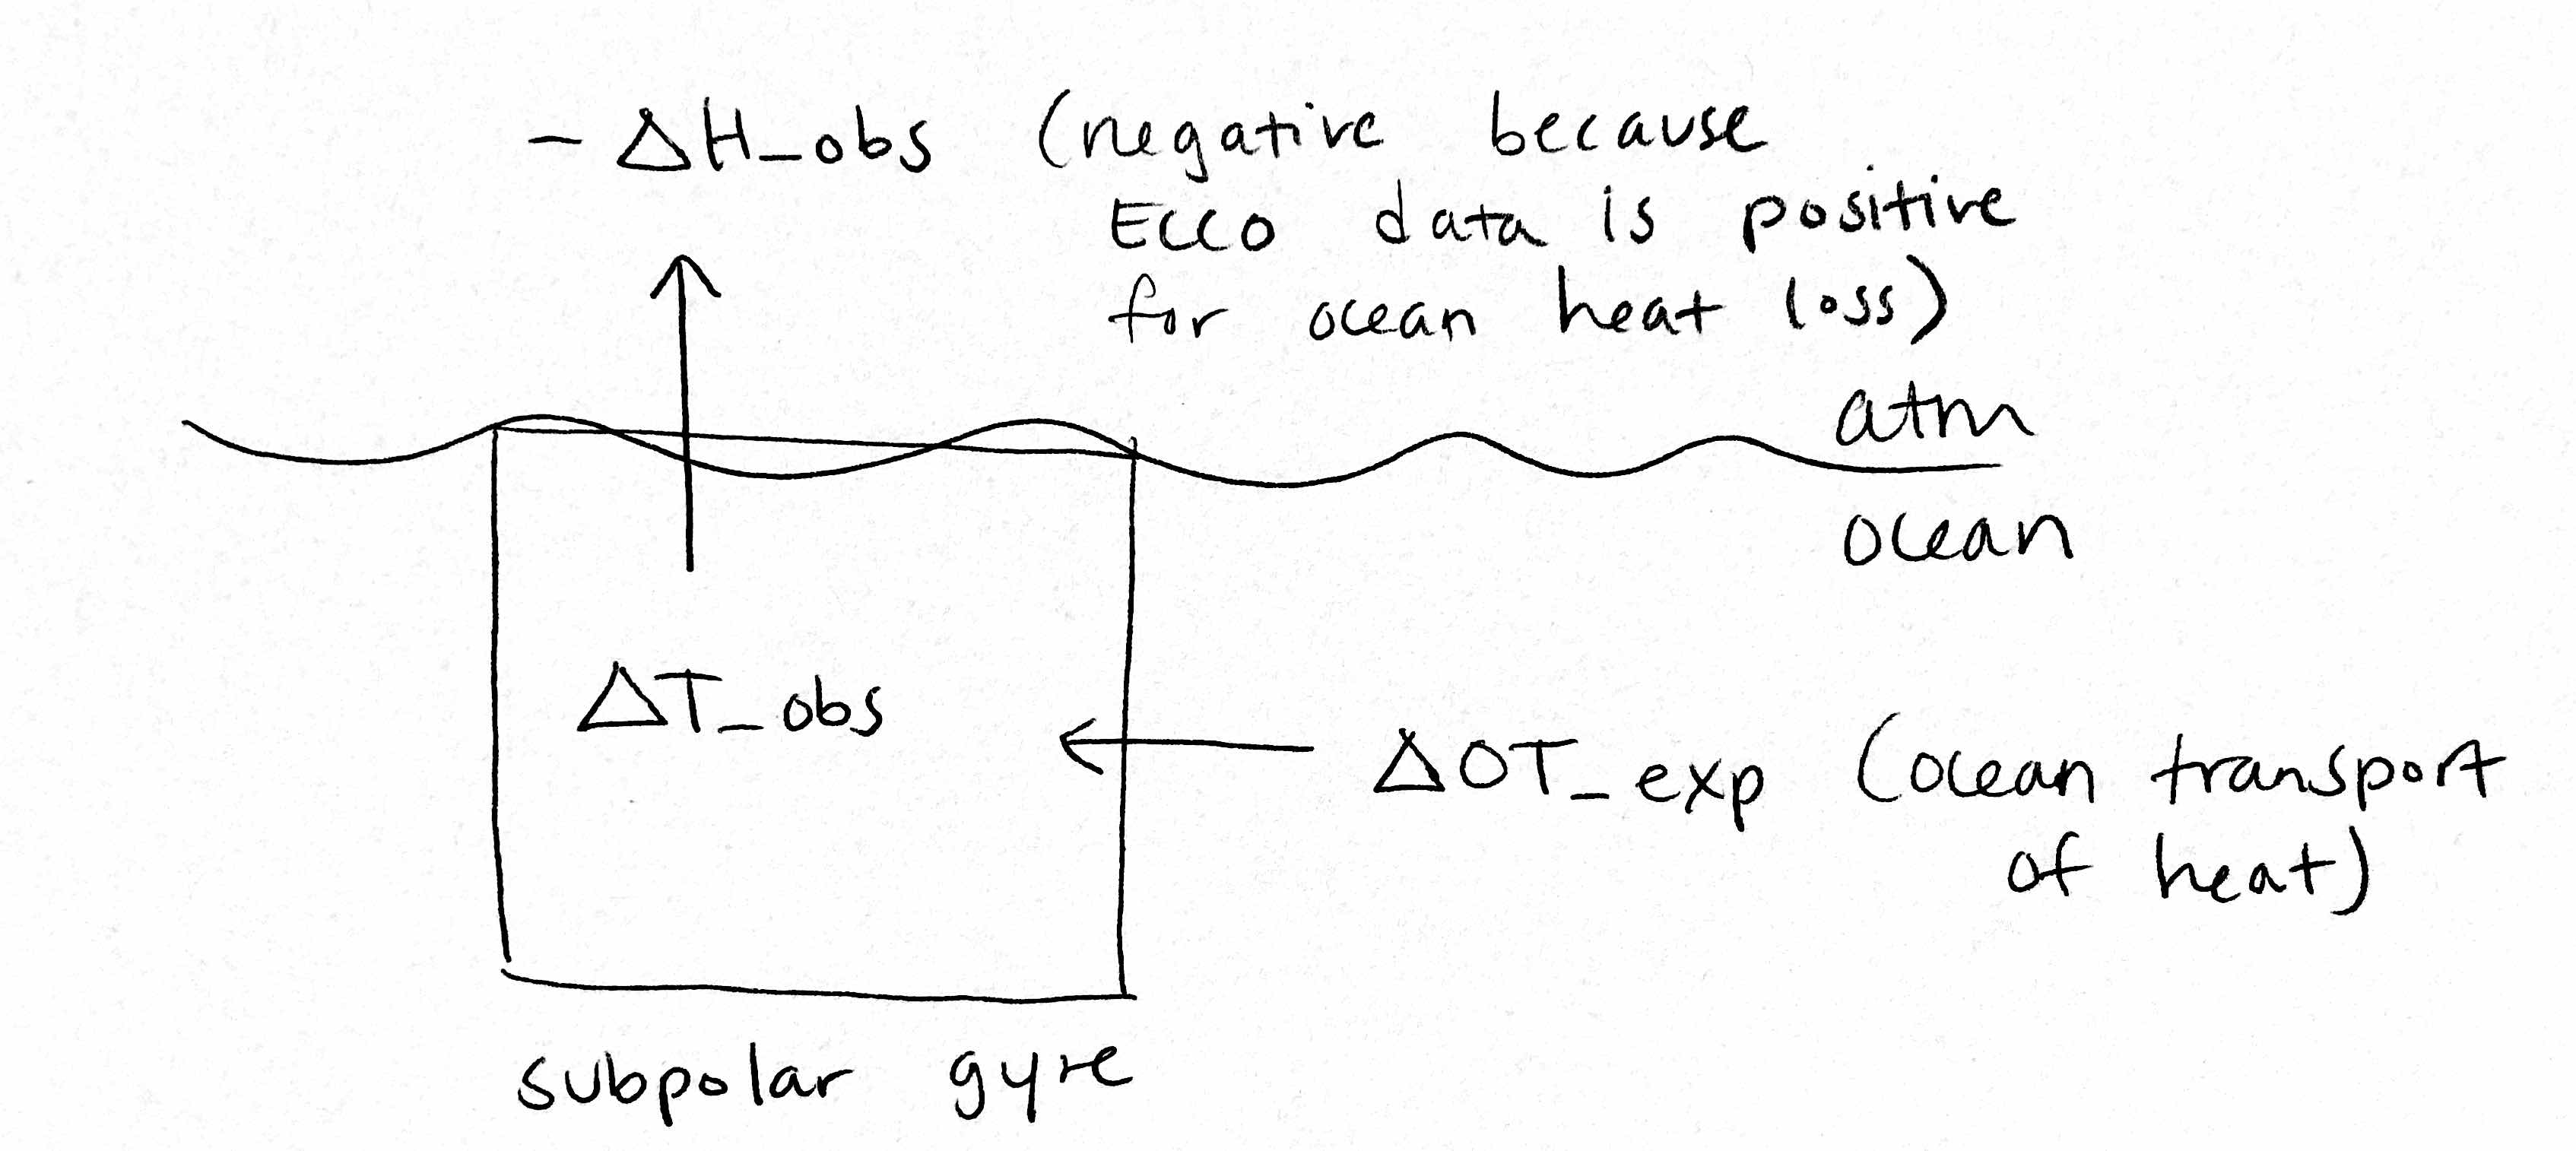 - ΔH_obs (negative because
ECCO data is positive
for ocean heat loss)
atm
ocean
ΔT_obs
ΔOT_exp (ocean transport
of heat)
subpolar gyre